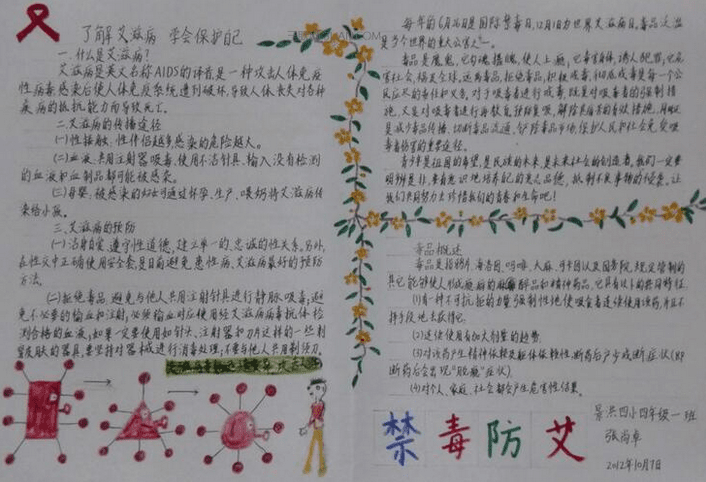 了解艾滋病 学会保护自己
一.什么是艾滋病?
艾滋病是英文名称AIDS的译音是一种攻击人体免疫
性病毒感染后使人体免疫系统遭到破坏,导致人体丧失对各种
疾病的抵抗能力而导致死亡。
二.艾滋病的传播途径
(一)性接触、性伴侣越多感染的危险越大。
(二)血液、共用注射器吸毒、使用不洁针具、输入没有检测
的血液和血制品都可能被感染。
(三)母婴、被感染的妇女可通过怀孕、生产、喂奶将艾滋病传
染给小孩。
三、艾滋病的预防
(一)洁身自爱、遵守性道德,建立单一的、忠诚的性关系。另外,
在性交中正确使用安全套,是目前避免患性病、艾滋病最好的预防
方法。
(二)拒绝毒品,避免与他人共用注射针具进行静脉吸毒;避
免不必要的输血和注射,必须输血时应使用经艾滋病病毒抗体检
测合格的血液;如果一定要使用如针头、注射器和刀片这样的一些刺
皮肤的器具,要坚持对器械进行消毒处理;不要与他人共用剃须刀。
每年的6月26日是国际禁毒日,12月1日为世界艾滋病日,毒品泛滥
是当今世界的重大公害之一。
毒品是魔鬼,它勾魂摄魄,使人上瘾;它毒害身体,诱人犯罪;它危
害社会,祸及全球。远离毒品,拒绝毒品,积极戒毒,彻底戒毒是每一个公
民应尽的责任和义务。对于吸毒者进行戒毒,既是对吸毒者的强制措
施,又是对吸毒者进行再教育
是减少毒品传播、切断毒品流通、铲除毒品市场,保护人民和社会免受吸
毒者伤害的重要途径。
青少年是祖国的希望,是民族的未来,是未来社会的创造者。我们一定要
明辨是非,要有意识地培养自己的意志品德,抵制不良事物的侵袭。让
我们共同努力去珍惜我们的青春和生命吧!
毒品概述
毒品是指鸦片、海洛因、吗啡、大麻、可卡因以及国务院规定管制的
其它能够使人形成瘾癖的麻醉药品和精神药品,它具有以下的共同特征:
(1)有一种不可抗拒的力量强制性地使吸食者连续使用该药,并且不
择手段地去获得它。
(2)连续使用有加大剂量的趋势
(3)对该药产生精神依赖及躯体依赖性,断药后产生戒断症状(即
断药后会出现“脱瘾”症状)
(4)对个人、家庭、社会都会产生危害性结果。
禁毒防艾
景洪四小四年级一班
张尚卓
2012年10月7日